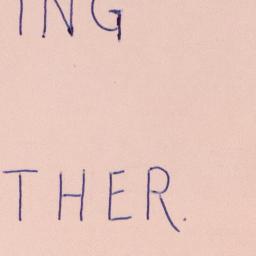 ING
THER.